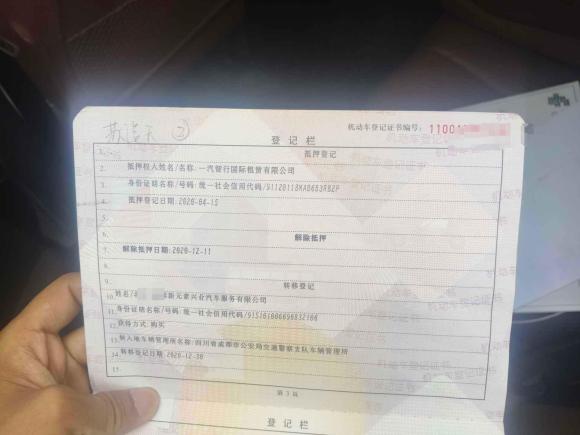 ②
机动车登记证书编号: 11001
登记栏
1. 抵押登记
2. 抵押权人姓名/名称: 一汽智行国际租赁有限公司
3. 身份证明名称/号码: 统一社会信用代码/
4. 抵押登记日期: 2020-04-15
5.
6. 解除抵押
7. 解除抵押日期: 2020-12-11
8.
9. 转移登记
10. 姓名/ 新元素兴业汽车服务有限公司
11. 身份证明名称/号码: 统一社会信用代码/
12. 获得方式: 购买
13. 转入地车辆管理所名称: 四川省成都市公安局交通警察支队车辆管理所
14. 转移登记日期: 2020-12-30
15.
第 3 页
登记栏